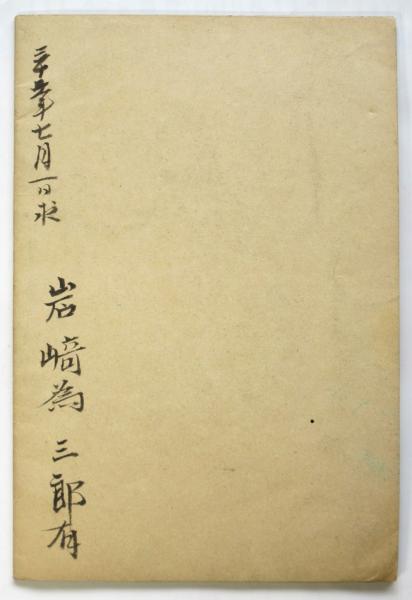 三十五年七月一日求
岩﨑為三郎有